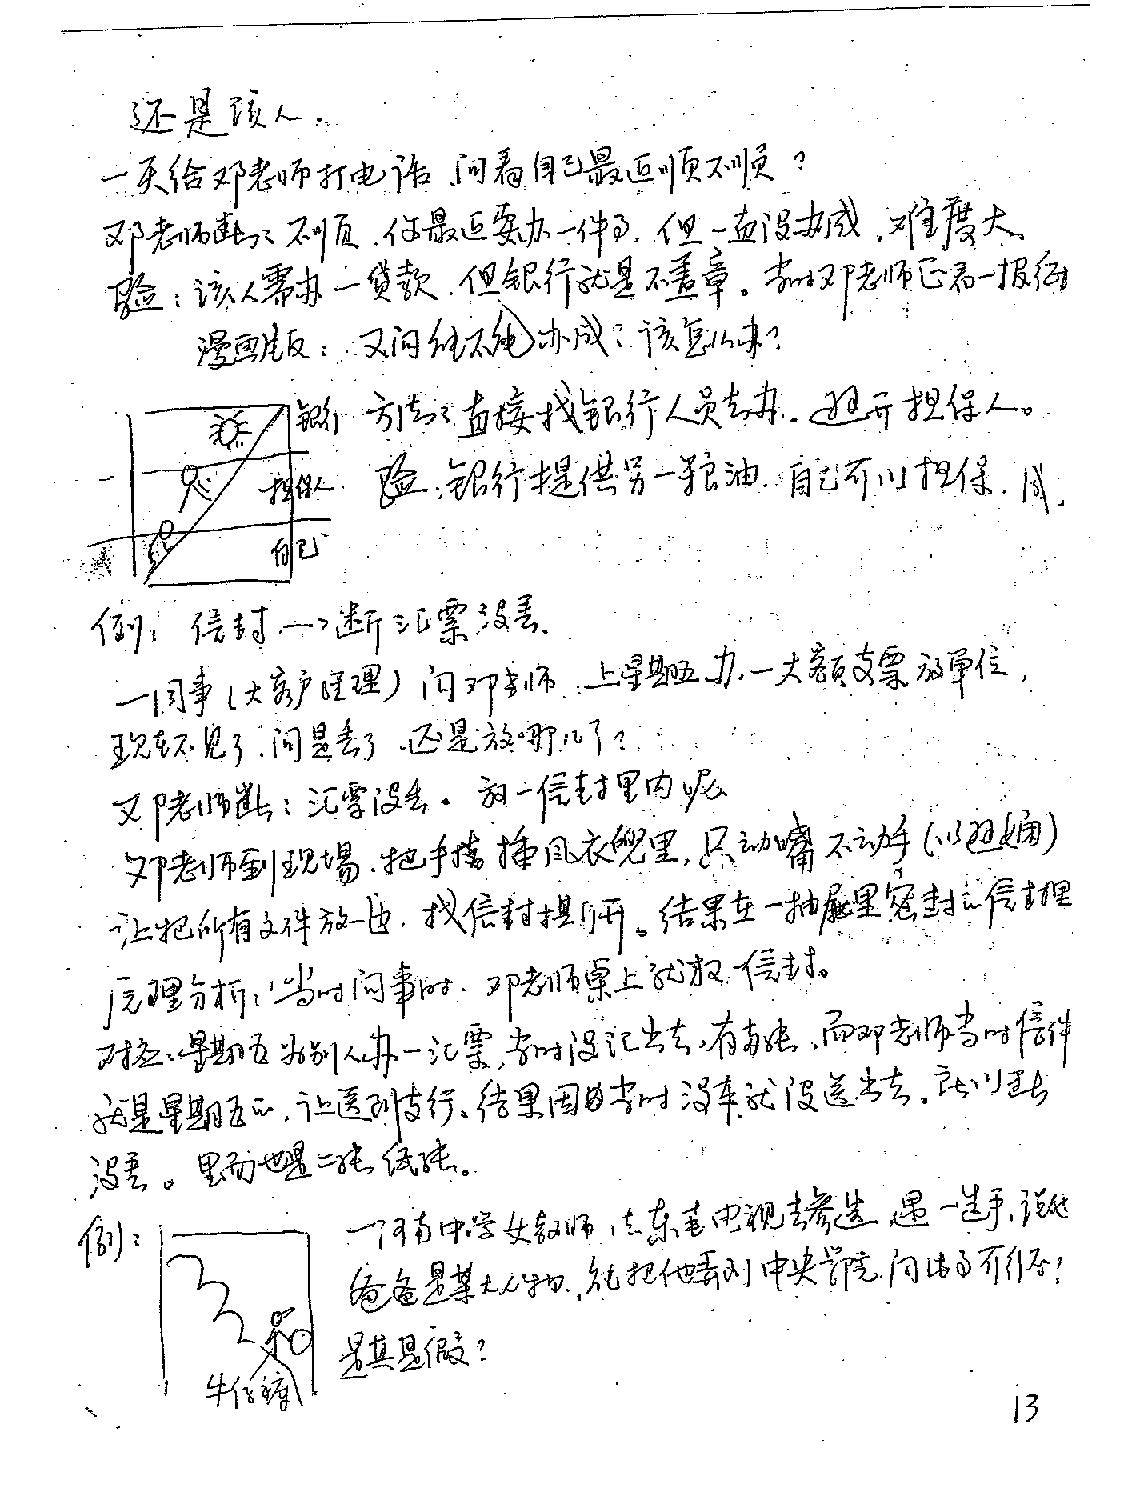 还是该人.
一天给邓老师打电话,问看自己最近顺不顺?
邓老师断:不顺,你最近要办一件事,但一直没办成,难度大。
验:该人需办一贷款,但银行就是不盖章。当时邓老师正看一报纸
漫画版:又问能不能办成?该怎么办?
银行 方法:直接找银行人员去办。避开担保人。
担保人 验:银行提供另一粮油,自己可以担保,成.
自己
例:信封→断汇票没丢.
一同事(大客户经理)问邓老师,上星期五办一大额支票放单位,
现在不见了,问是丢了,还是放哪儿了?
邓老师断:汇票没丢。放一信封里内呢
邓老师到现场,把手插风衣兜里,只动嘴不动手(以避嫌)
让把所有文件放一边,找信封撕开。结果在一抽屉里密封的信封里
原理分析:当时问事时,邓老师桌上就放一信封。
对应:星期五为别人办一汇票,当时没记出去,有两张,而邓老师当时信件
就是星期五的,让送到支行、结果因当时没车就没送出去,所以断
没丢。里面也是二张纸张。
例: 一河南中学女教师,去东电视去参选,遇一选手,说他
爸爸是某大人物,能把他弄到中央剧院,问此事可行否?
是真是假?
牛仔裤
13